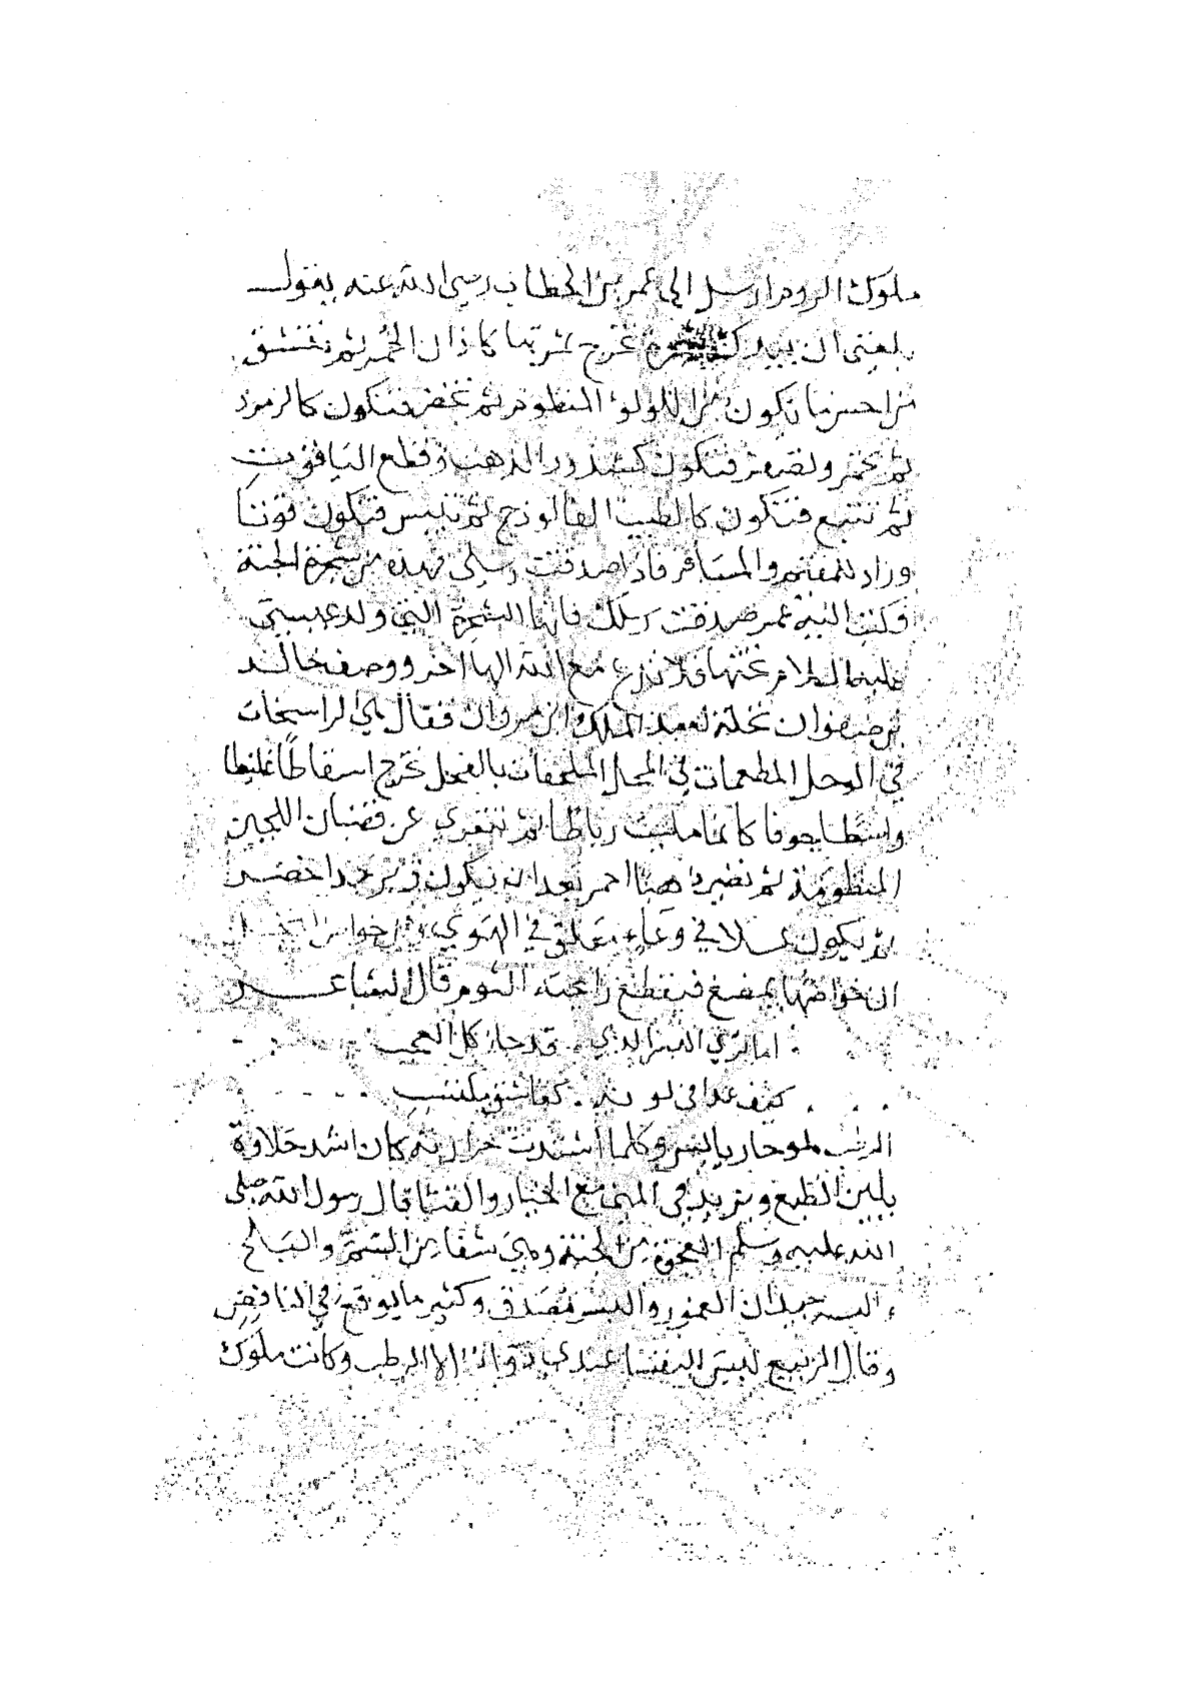 ملوك الروم ارسل الى عمر بن الخطاب رضي الله عنه يقول
بلغني ان ببلدك شجرة تخرج ثمرتها كاذان الحمر ثم تنشق
من احسن ما تكون من اللولو المنظوم ثم تخضر فتكون كالزمرد
ثم تحمر وتصفر فتكون كشذور الذهب وقطع الياقوت
ثم تينع فتكون كالطيب الفالوذج ثم تيبس فتكون قوتا
وزاد للمقيم والمسافر فاذا صدقت رسلي فهذه من شجرة الجنة
فكتب اليه عمر صدقت رسلك فانها الشجرة التي ولد عيسى
عليه السلام تحتها فلا تدع مع الله الها اخر ووصف خالد
بن صفوان نخلة لعبد الملك بن مروان فقال هي الراسخات
في الوحل المطعمات في المحل الملقحات بالفحل تخرج اسقاطًا غليظا
واسطا جوفا كانما ملئت رباطا ثم تنفري عن قضبان اللجين
المنظومة ثم تصير ذهبا احمر بعد ان يكون زبرجدا اخضر
ثم يكون عسلا في وعاء معلق في الهوى ومن خواص
ان خواصها يمضغ فيقطع رائحة الثوم قال الشاعر
اما ترى البسر الذي قد حاز كل العجب
كيف غدا في لونه كعاشق مكتئب
الرطب حار يابس وكلما اشتدت حرارته كان اشد حلاوة
يلين الطبع ويزيد في المني مع الخيار والقثا قال رسول الله صلى
الله عليه وسلم العجوة من الجنة وهي شفا من السم والبلح
والبسر جيدان العمور والبسر مصدق وكثير ما يوقع في النافض
وقال الربيع ليس للنفسا عندي دواء الا الرطب وكانت ملوك